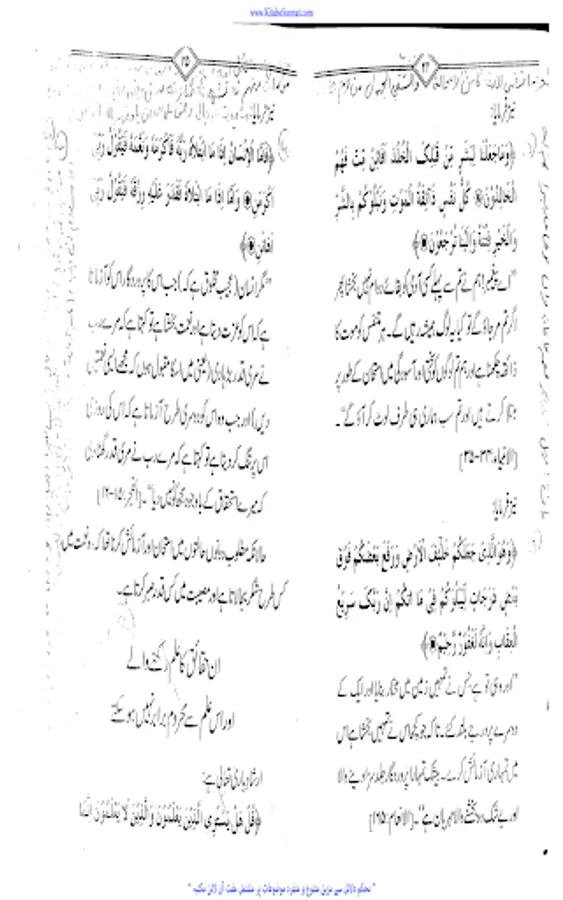 www.KitaboSunnat.com
۲۴
نیز فرمایا:
﴿وَمَا جَعَلْنَا لِبَشَرٍ مِّنْ قَبْلِكَ الْخُلْدَ أَفَائِنْ مِّتَّ فَهُمُ
الْخَالِدُوْنَ كُلُّ نَفْسٍ ذَآئِقَةُ الْمَوْتِ وَنَبْلُوْكُمْ بِالشَّرِّ
وَالْخَيْرِ فِتْنَةً وَّاِلَيْنَا تُرْجَعُوْنَ﴾
"اے پیغمبر! ہم نے تم سے پہلے کسی آدمی کو بقائے دوام نہیں بخشا پھر
اگر تم مر جاؤ گے تو کیا یہ لوگ ہمیشہ رہیں گے۔ ہر متنفس کو موت کا
ذائقہ چکھنا ہے اور ہم تم لوگوں کو سختی اور آسودگی میں امتحان کے طور پر
مبتلا کرتے ہیں اور تم سب ہماری ہی طرف لوٹ کر آؤ گے"۔
[الانبیاء: ۳۴-۳۵]
نیز فرمایا:
﴿وَهُوَ الَّذِىْ جَعَلَكُمْ خَلٰٓئِفَ الْاَرْضِ وَرَفَعَ بَعْضَكُمْ فَوْقَ
بَعْضٍ دَرَجَاتٍ لِّيَبْلُوَكُمْ فِىْ مَا اٰتٰكُمْ اِنَّ رَبَّكَ سَرِيْعُ
الْعِقَابِ وَاِنَّهٗ لَغَفُوْرٌ رَّحِيْمٌ﴾
"اور وہی تو ہے جس نے تمہیں زمین میں مختار بنایا اور ایک کے
دوسرے پر درجے بلند کئے۔ تاکہ جو کچھ اس نے تمہیں بخشا ہے اس
میں تمہاری آزمائش کرے۔ بیشک تمہارا پروردگار جلد سزا دینے والا
اور بے شک وہ بخشنے والا مہربان ہے"۔ [الانعام: ۱۶۵]
۲۵
نیز فرمایا:
﴿فَاَمَّا الْاِنْسَانُ اِذَا مَا ابْتَلَاهُ رَبُّهٗ فَاَكْرَمَهٗ وَنَعَّمَهٗ فَيَقُوْلُ رَبِّىْ
اَكْرَمَنِ وَاَمَّا اِذَا مَا ابْتَلَاهُ فَقَدَرَ عَلَيْهِ رِزْقَهٗ فَيَقُوْلُ رَبِّىْ
اَهَانَنِ﴾
"مگر انسان (عجیب مخلوق ہے کہ) جب اس کا پروردگار اس کو آزماتا
ہے کہ اس کو عزت دیتا ہے اور نعمت بخشتا ہے تو کہتا ہے کہ میرے رب
نے میری قدر بڑھا دی (یعنی میں اسکا مقبول ہوں کہ مجھے ایسی نعمتیں
دیں) اور جب وہ اس کو دوسری طرح آزماتا ہے کہ اس کی روزی
اس پر تنگ کر دیتا ہے تو کہتا ہے کہ میرے رب نے میری قدر گھٹا دی
کہ میرے استحقاق کے باوجود مجھ کو نہیں دیا"۔ [الفجر: ۱۵-۱۶]
حالانکہ مطلوب دونوں حالتوں میں امتحان اور آزمائش کرنا تھا کہ وہ نعمت میں
کس طرح شکر بجا لاتا ہے اور مصیبت میں کس قدر صبر کرتا ہے۔
ان حقائق کا علم رکھنے والے
اور اس علم سے محروم برابر نہیں ہو سکتے
ارشاد باری تعالیٰ ہے:
﴿قُلْ هَلْ يَسْتَوِى الَّذِيْنَ يَعْلَمُوْنَ وَالَّذِيْنَ لَا يَعْلَمُوْنَ اِنَّمَا
"محکم دلائل سے مزین متنوع و منفرد موضوعات پر مشتمل مفت آن لائن مکتبہ"